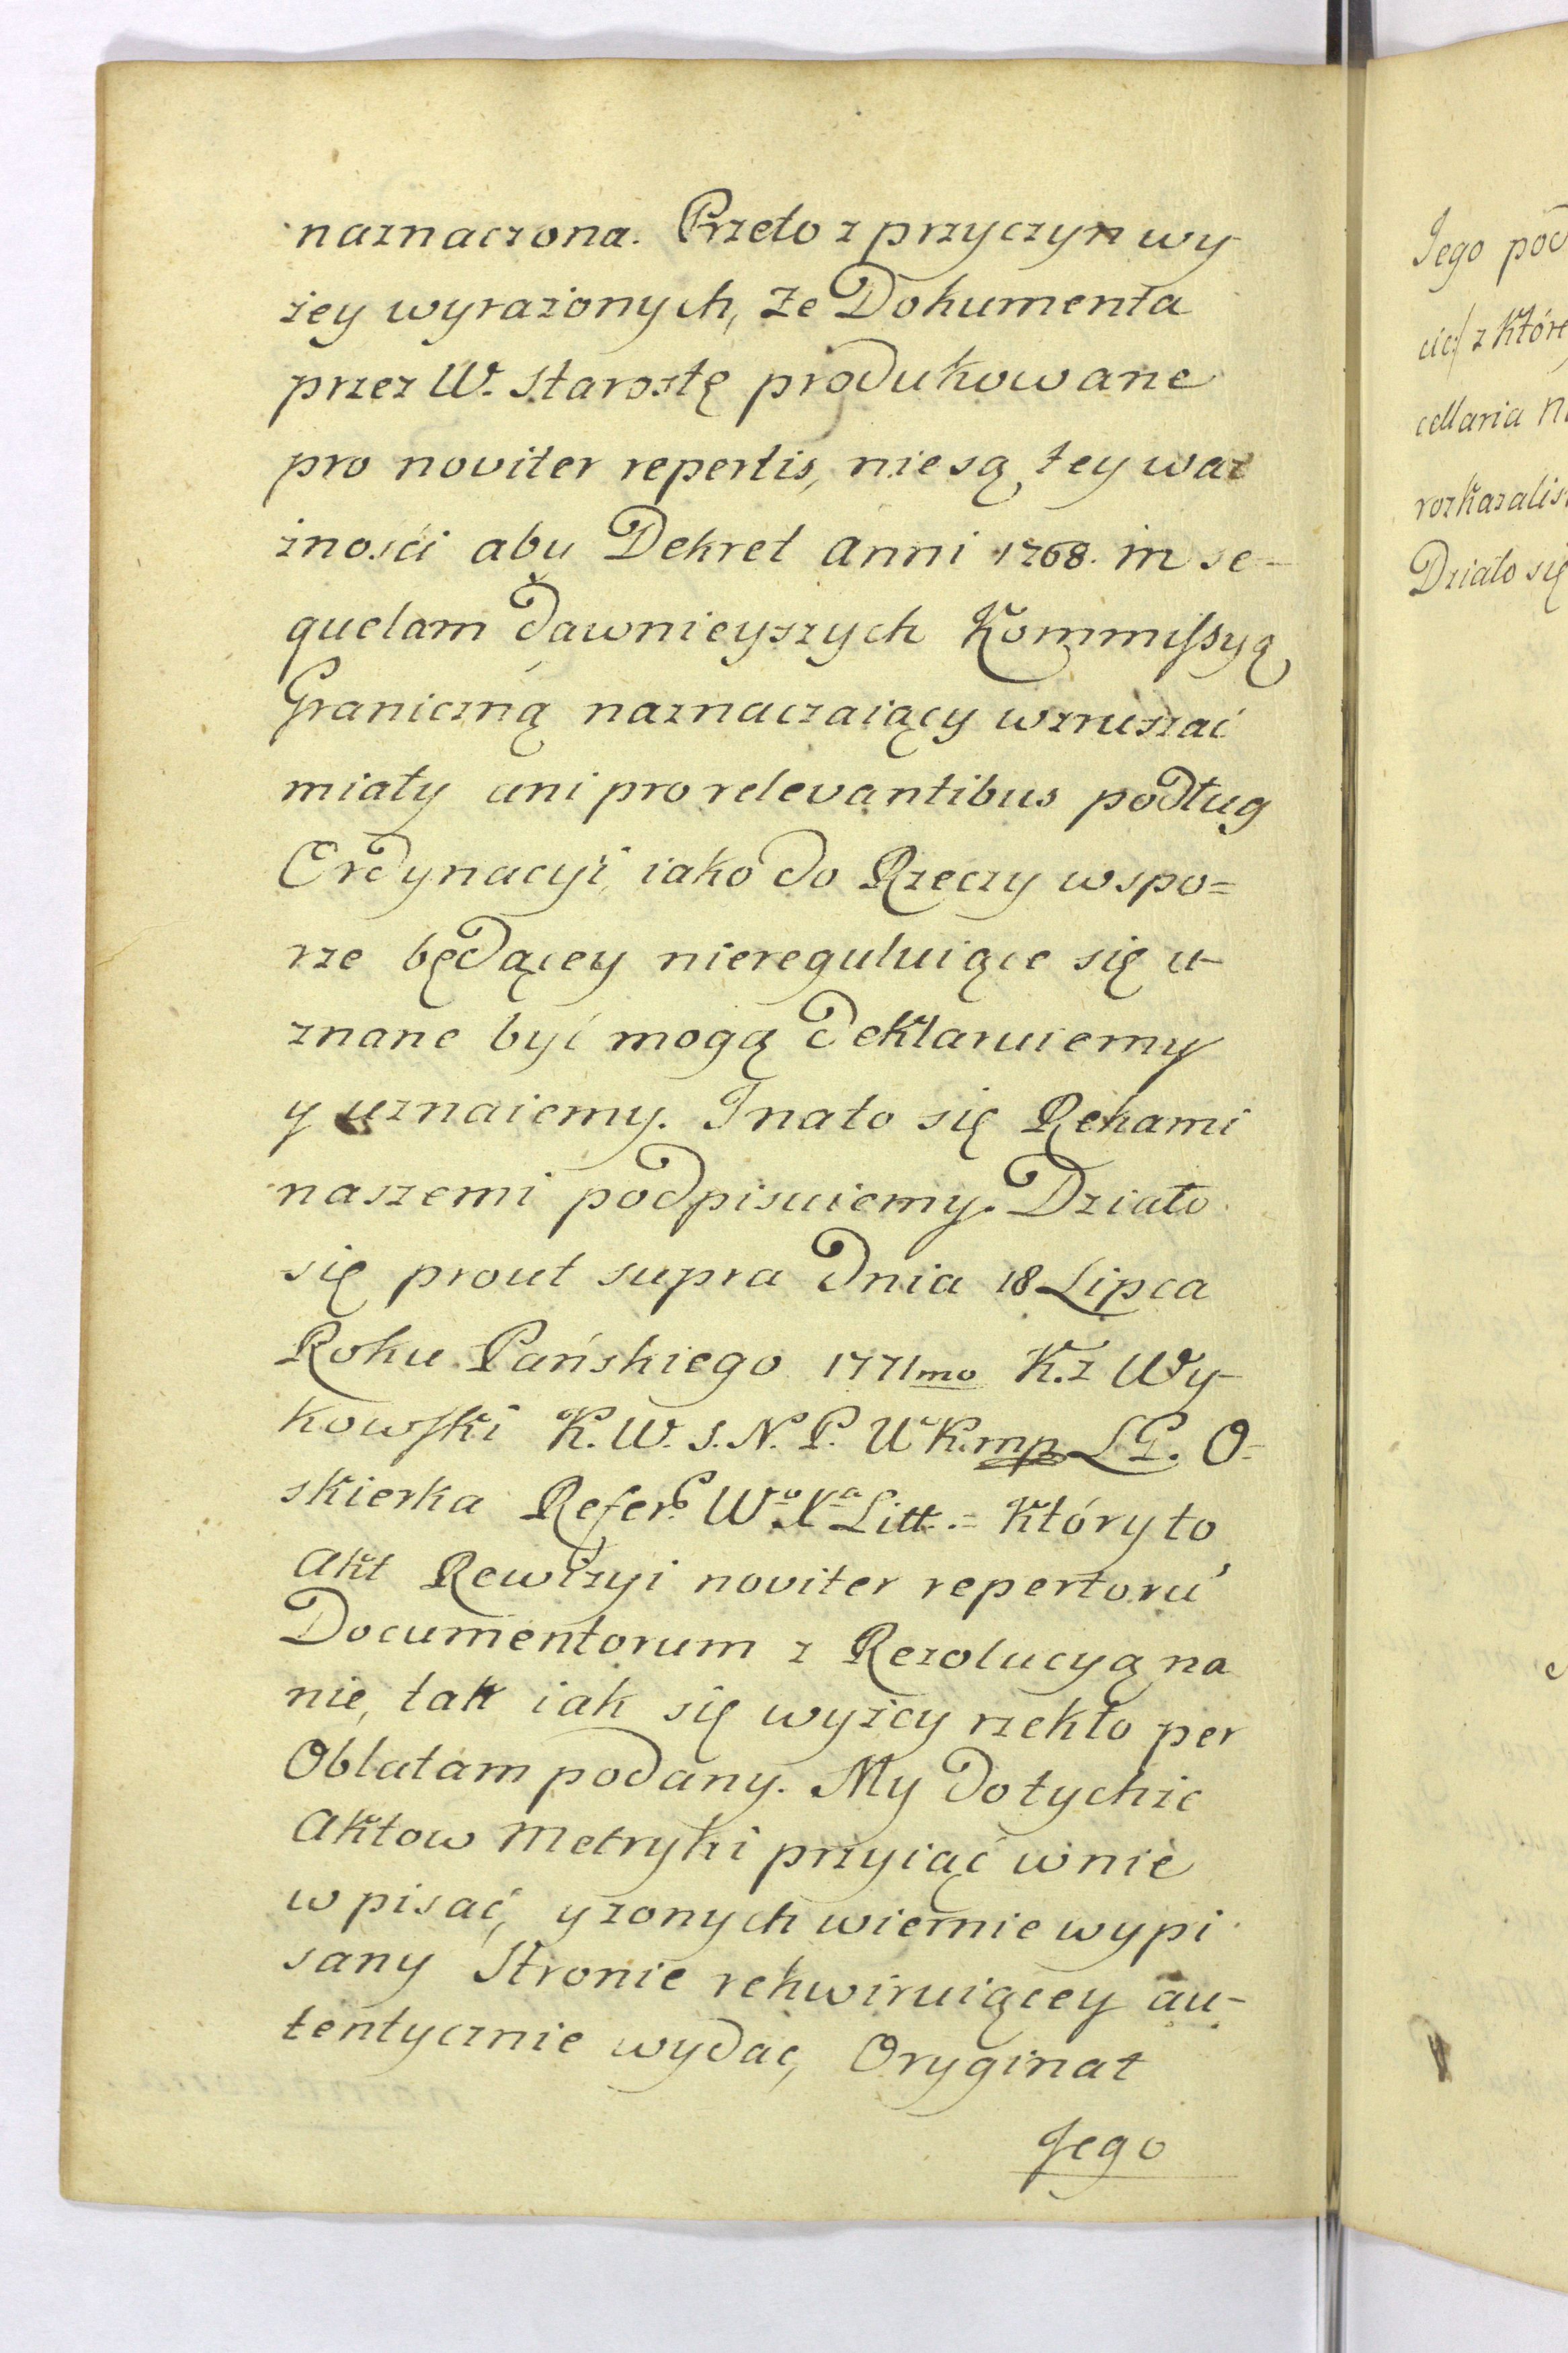 naznaczona. Przeto z przyczyn wy-
żey wyrażonych, że Dokumenta
przez W. Starostę produkowane
pro noviter repertis, nie są tey waż
żności aby Dekret Anni 1768. in se-
quelam dawnieyszych Kommissyą
Graniczną naznaczaiący wzruszać
miały ani pro relevantibus podług
Ordynacyi, iako do Rzeczy w spo=
rze będącey niereguluiące się u-
znane być mogą deklaruiemy
y uznaiemy. I na to się Rękami
naszemi podpisuiemy. Działo
się prout supra Dnia 18 Lipca
Roku Pańskiego 1771mo K. z Wy-
kowski K. W. S. N. P. W K. mp L G. O-
skierka Refer. Wo Xa Litt. = Który to
Akt Rewizyi noviter repertorú
Documentorum z Rezolucyą na
nie, tak iak się wyżey rzekło per
Oblatam podany. My do tychże
Aktow Metryki przyiąć w nie
wpisać, y z onych wiernie wypi
sany Stronie rekwiruiącey au-
tentycznie wydać, Oryginał
Jego
Jego pod
cić/ z które
cellaria N
rozkazalis
Działo się